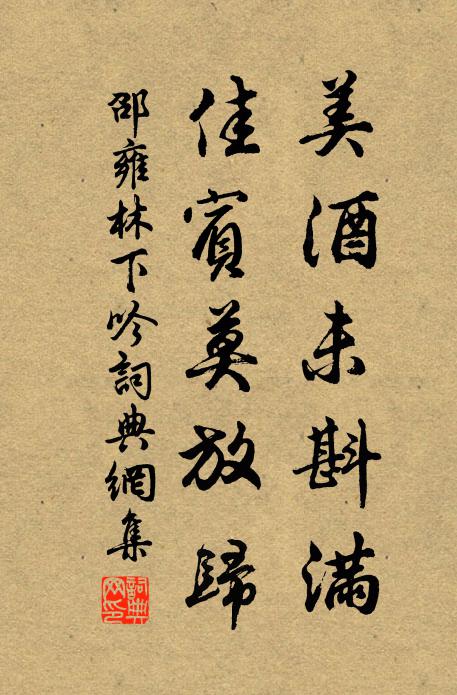 美酒未斟滿
佳賓莫放歸
邵雍林下吟詞典網集
詞典網印